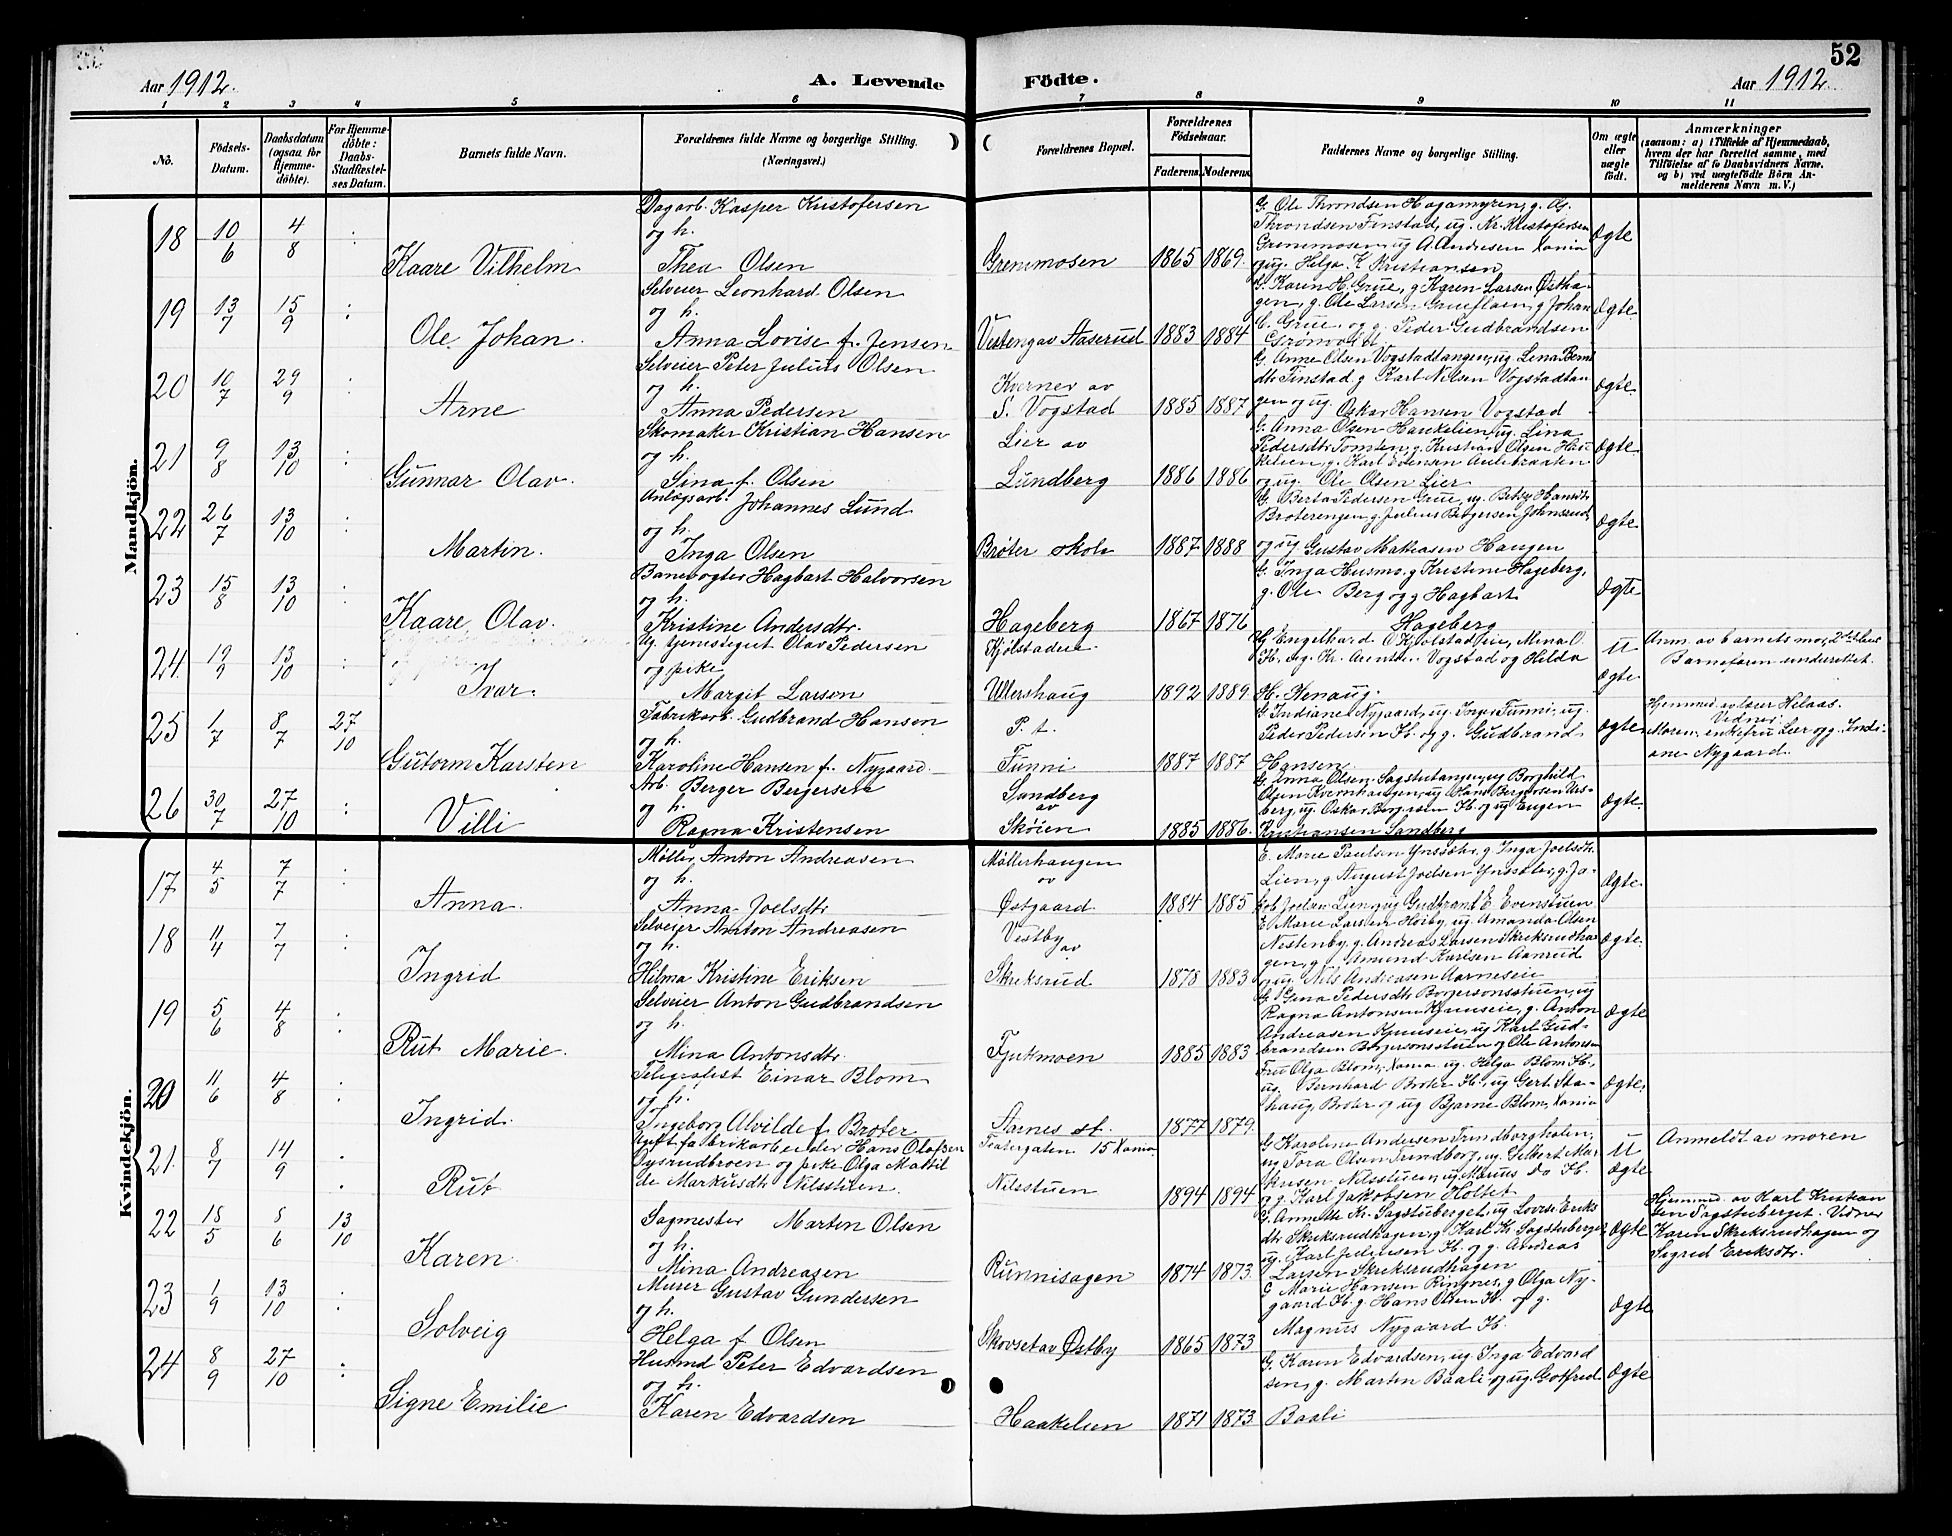 52
Aar 1912.
A. Levende
Födte.
Aar 1912.
1 2 3 4 5 6 7 8 9 10 11
No.
Födsels-
Datum.
Daabsdatum
(ogsaa for
Hjemme-
döbte).
For Hjemme-
döbte:
Daabs-
Stadfæstel-
ses Datum.
Barnets fulde Navn.
Forældrenes fulde Navne og borgerlige Stilling.
(Næringsvei.)
Forældrenes Bopæl.
Forældrenes
Födselsaar.
Faderens.
Moderens.
Faddernes Navne og borgerlige Stilling.
Om ægte
eller
uægte
födt.
Anmærkninger
(saasom: a) i Tilfælde af Hjemmedaab,
hvem der har forrettet samme, med
Tilföielse af to Daabsvidners Navne,
og b) ved uægtefödte Börn An-
melderens Navn m. V.)
Mandkjön.
18 10/6 4/8 :
Kaare Vilhelm
Dagarb. Kasper Kristofersen
og h.
Thea Olsen
Grenimosen 1865 1869.
G. Ole Throndsen Hagamyren, g. Og.
Throndsen Finstad, ug. Kr. Kristofersen
Grenimosen, ug A. Andresen Xania
og ug. Helga K Kristiansen
Ægte
19 13/7 15/9 :
Ole Johan.
Selveier Leonhard Olsen
og h.
Anna Lovise f. Jensen
Vesteng av Aaserud 1883 1884
G. Karen H. Grue, g Karen Larsen Østha-
gen, g. Ole Larsen Grueflaen, g Johan
C. Grue og g. Peder Gudbrandsen
Grønvold
Ægte.
20 10/7 29/9 :
Arne
Selveier Peter Julius Olsen
og h.
Anna Pedersen
Kverner av
S. Vogstad 1885 1887
G. Anne Olsen Vogstadtangen, ug. Lina Bern
dtr Finstad g Karl Nilsen Vogstadtan
gen og ug. Oskar Hansen Vogstad
Ægte.
21 9/8 13/10 :
Gunnar Olav.
Skomaker Kristian Hansen
og h.
Sina f. Olsen
Lier av
Lundberg 1886 1886
G. Anna Olsen Haukelien, ug. Lina
Pedersdtr Tomten, g. Kristian Olsen Hau
kelien, g. Karl Evensen Aulibraaten
og ug. Ole Olsen Lier
Ægte.
22 26/7 13/10 :
Martin.
Anlægsarb. Johannes Lund
og h.
Inga Olsen
Brøter skole 1887 1888
G. Berta Pedersen Grue, ug. Betzy Hansdtr
Brøterengen, g. Julius Bergersen Johnsrud,
og ug Gustav Mathiasen Haugen
Ægte.
23 15/8 13/10 :
Kaare Olav.
Banevogter Hagbart Halvorsen
og h.
Kristine Andersdtr.
Hageberg 1867 1876
G. Inga Husmo, g Kristine Hageberg,
g. Ole Berg og g Hagbart
Hageberg
Ægte
24. 19/9 13/10
Ivar.
Ug. tjenestegut Olav Pedersen
og pike
Margit Larsen
Kjølstadeie
Ullershaug 1892 1889.
Engelhard O Kjølstadeie, Mina O.
Kr. Arentsen Vogstad og Hilda
U
ægte.
Anm. av barnets mor,
Barnefaren underrettet.
25 1/7 8/7 27/10
Gutorm Karsten
Fabrikarb. Gudbrand Hansen
og h.
Karoline Hansen f. Nygaard.
P. t.
Funni 1887 1887
G Indiane Nygaard, ug. Inga Funni, ug.
Peder Pedersen H. og g. Gudbrand
Hansen
Ægte.
Hjemmed. av lærer Hilaas.
Vidner:
Moren, enkefru Lier og g. Indi-
ane Nygaard.
26 30/7 27/10 :
Villi
Arb. Berger Bergersen
og h.
Ragna Kristensen
Sandberg
av
Skøien 1885 1886.
G. Anna Olsen Sagstutangen, ug Borghild
Olsen Kvernhaugen, ug Hans Bergersen
berg, ug. Oskar Bergersen H. og ug Eugen
Kristiansen Sandberg
Ægte.
Kvindekjön.
17 4/5 7/7 :
Anna.
Møller Anton Andreasen
og h.
Anna Joelsdtr
Møllerhaugen
av
Østgaard. 1884 1885
E. Marie Paulsen g. Inga Joelsdtr.
Lien, g August Joelsen g. Ja-
kob Joelsen Lien, ug Gudbrand E Evenstuen
Ægte.
18 11/4 7/7 :
Ingrid
Selveier Anton Andreasen
og h.
Hilma Kristine Eriksen
Vestby
av
Skriksrud 1878 1883
E. Marie Larsen Høiby, ug. Amanda Olsen
Nestenby, g. Andreas Larsen Skriksrudha
gen, g. Amund Karlsen Aanrud
og ug. Nils Andreasen Aarneseie
Ægte.
19 5/6 4/8 :
Rut Marie.
Selveier Anton Gudbrandsen
og h.
Mina Antonsdtr.
Fjukmoen 1885 1883
G. Gina Pedersdtr Borgersonstuen, ug
Ragna Antonsen Kjuuseie, g. Anton
Andreasen Kjuuseie, ug Karl Gud-
brandsen Borgersonstuen og Ole Antonsen
Ægte
20 11/6 4/8 :
Ingrid.
Telegrafist Einar Blom
og h.
Ingeborg Alvilde f. Brøter
Aarnes st. 1877 1879.
Fru Olga Blom, Xania ug. Helga Blom H.,
ug. Bernhard Brøter H., ug Gert Sta-
haug Brøter og ug Bjarne Blom, Xania
Ægte.
21. 8/7 14/9 .
Rut
Ugift fabrikarbeider Hans Olafsen
Dysrudbroen og pike Olga Mattil
de Markusdtr Nilsstuen.
Teatergaten 15 Xania.
Nilsstuen 1894 1894
G Karoline Andersen Trindborgholen,
ug Tora Olsen Trindborg, ug. Gilbert Mar
kusen Nilsstuen, ug Marius do H.
og g. Karl Jakobsen Holtet
U
ægte.
Anmeldt av moren
22 18/5 5/6 13/10
Karen
Sagmester Marton Olsen
og h.
Mina Andreasen
Runnisagen 1874 1873
G. Annette Kr. Sagstuberget, ug Lovise Eriks
dtr Skriksrudhagen, g. Karl Kr. Sagstuberget,
ug. Karl Juliusen H. og g. Andreas
Larsen Skriksrudhagen
Ægte
Hjemmed. av Karl Kristian
sen Sagstuberget. Vidner
Karen Skriksrudhagen og
Sigrid Eriksdtr.
23 1/9 13/10 :
Solveig
Murer Gustav Gundersen
og h.
Helga f Olsen
Skovset av Østby 1865 1873
G Marie Hansen Ringnes, g Olga Ny-
gaard H. g. Hans Olsen H. og g.
Magnus Nygaard H.
Ægte
24 8/9 27/10 :
Signe Emilie
Husmd Peter Edvardsen
og h.
Karen Edvardsen
Haakelien 1871 1873
G. Karen Edvardsen, ug Inga Edvard
sen, g. Marten Baali og ug. Gotfred
Baali
Ægte